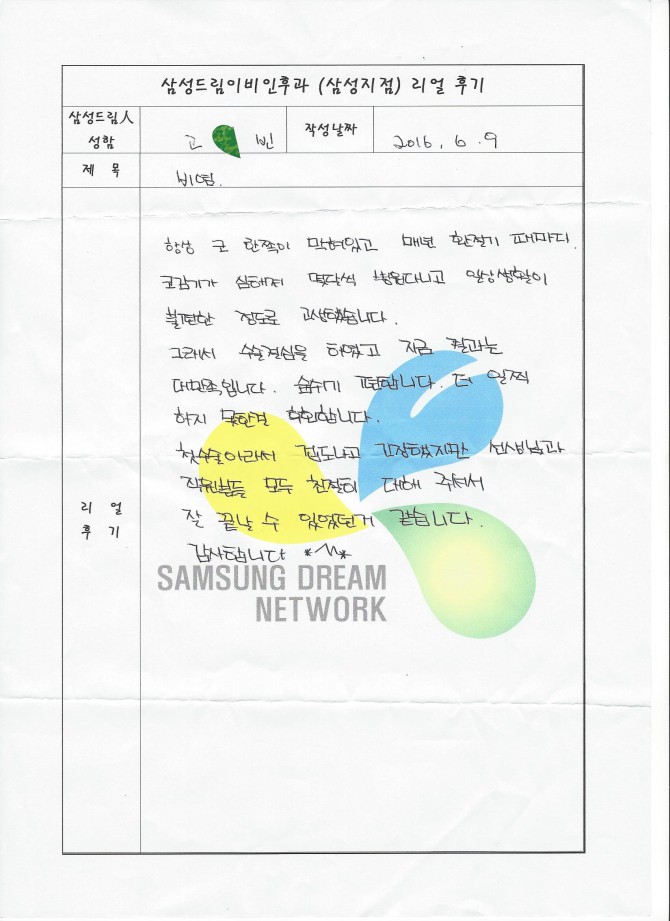 삼성드림이비인후과 (삼성지점) 리얼 후기
삼성드림人
성함
고 빈
작성날짜
2016. 6. 9
제 목
비염.
항상 코 한쪽이 막혀있고 매번 환절기 때마다.
코감기가 심해져 몇달씩 병원다니고 일상생활이
불편한 정도로 고생했습니다.
그래서 수술결심을 하였고 지금 결과는
대만족입니다. 숨쉬기 편합니다. 더 일찍
하지 못한걸 후회합니다.
첫수술이라서 겁도나고 긴장했지만 선생님과
직원분들 모두 친절히 대해 주셔서
잘 끝날 수 있었던거 같습니다.
감사합니다 *^^*
리 얼
후 기
SAMSUNG DREAM
NETWORK